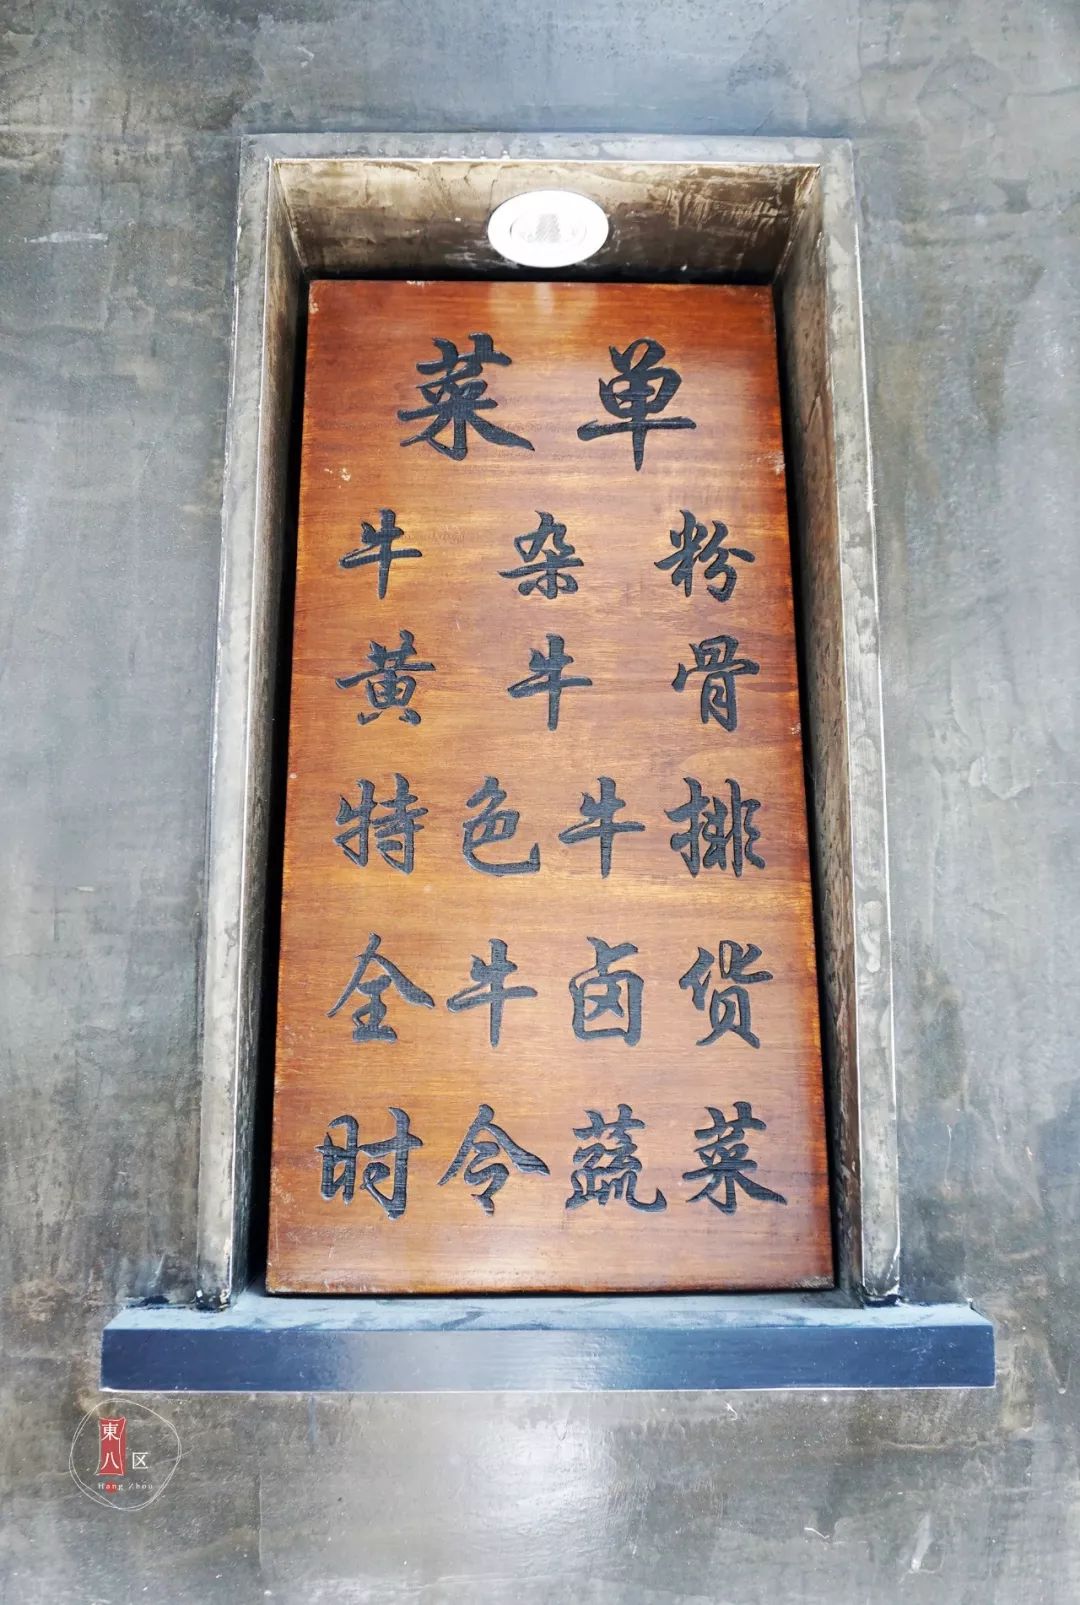 菜单
牛杂粉
黄牛骨
特色牛排
全牛卤货
时令蔬菜
東八区
Hang Zhou